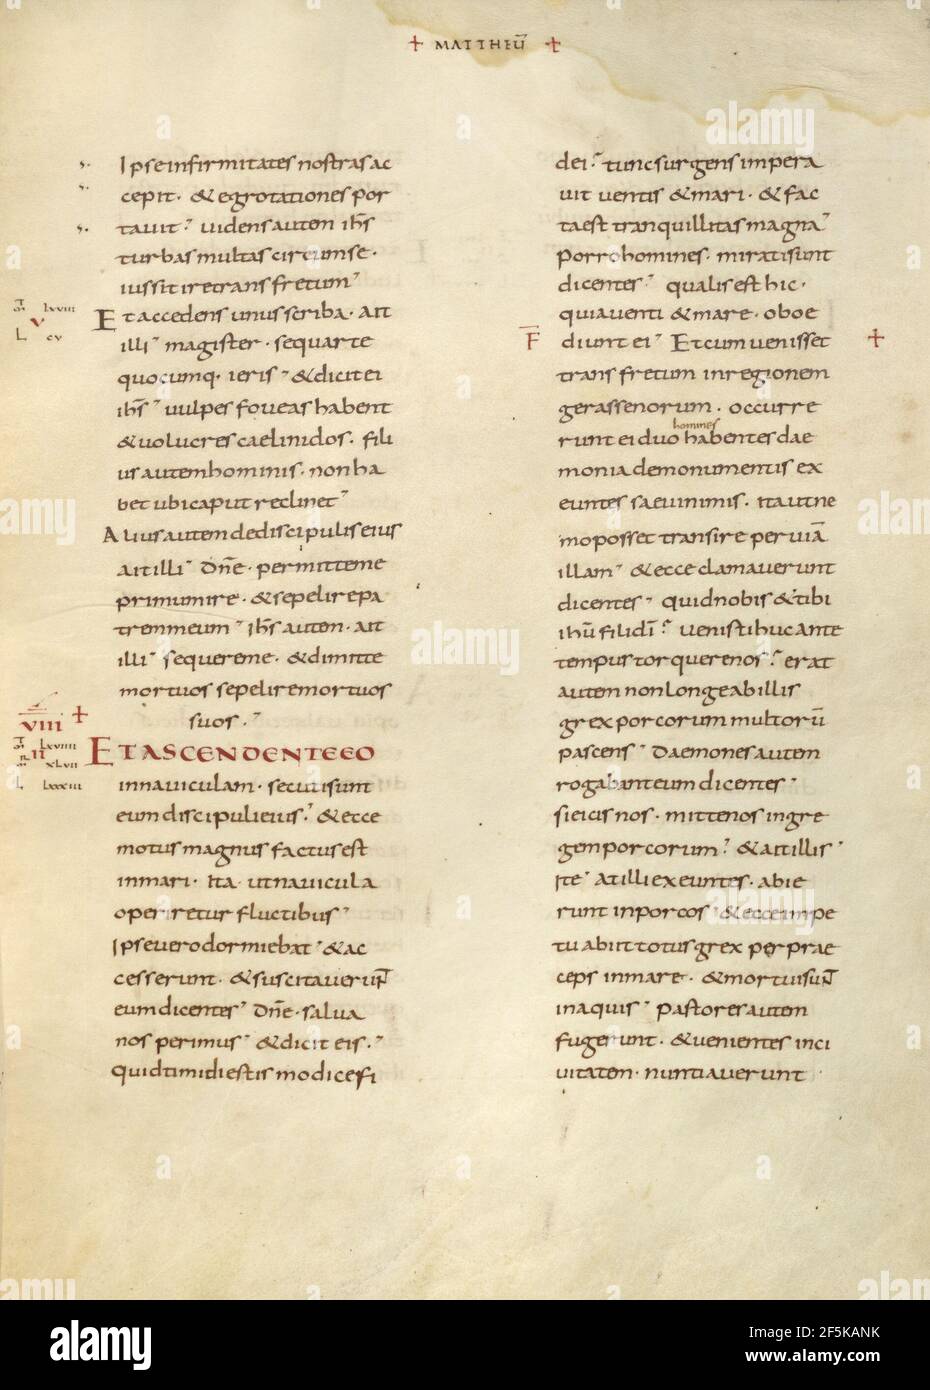 + MATTHEU̅ +
Ipse infirmitates nostras ac
cepit· & egrotationes por
tavit· videns autem ih̅s
turbas multas circumse·
iussit ire trans fretum·
LXVIII
V
L CV
Et accedens unus scriba· ait
illi· magister· sequar te
quocumq· ieris· & dicit ei
ih̅s· vulpes foveas habent
& volucres caeli nidos· fili
us autem hominis· non ha
bet ubi caput reclinet·
Alius autem de discipulis eius
ait illi· dn̅e· permitte me
primum ire· & sepelire pa
trem meum· ih̅s autem· ait
illi· sequere me· & dimitte
mortuos sepelire mortuos
suos·
VIII +
LXVIIII
II
XLVII
L LXXXIII
ET ASCENDENTE EO
in naviculam· secuti sunt
eum discipuli eius· & ecce
motus magnus factus est
in mari· Ita ut navicula
operiretur fluctibus·
Ipse vero dormiebat· & ac
cesserunt· & suscitaverunt
eum dicentes· dn̅e· salva
nos perimus· & dicit eis·
quid timidi estis modice fi
dei· tunc surgens impera
vit ventis & mari· & fac
ta est tranquillitas magna·
Porro homines· mirati sunt
dicentes· qualis est hic·
quia venti & mare· oboe
F diunt ei· Et cum venisset +
trans fretum in regionem
gerassenorum· occurre
homines
runt ei duo habentes dae
monia de monumentis ex
euntes saevi nimis· ita ut ne
mo posset transire per via̅
illam· & ecce clamaverunt
dicentes· quid nobis & tibi
ihu̅ fili di̅· venisti huc ante
tempus torquere nos· erat
autem non longe ab illis
grex porcorum multoru̅
pascens· Daemones autem
rogabant eum dicentes·
si eicis nos· mitte nos in gre
gem porcorum· & ait illis·
Ite· at illi exeuntes· abie
runt in porcos· & ecce impe
tu abiit totus grex per prae
ceps in mare· & mortui sunt
in aquis· Pastores autem
fugerunt· & venientes in ci
vitatem· nuntiaverunt
alamy
Image ID: 2F5KANK
www.alamy.com